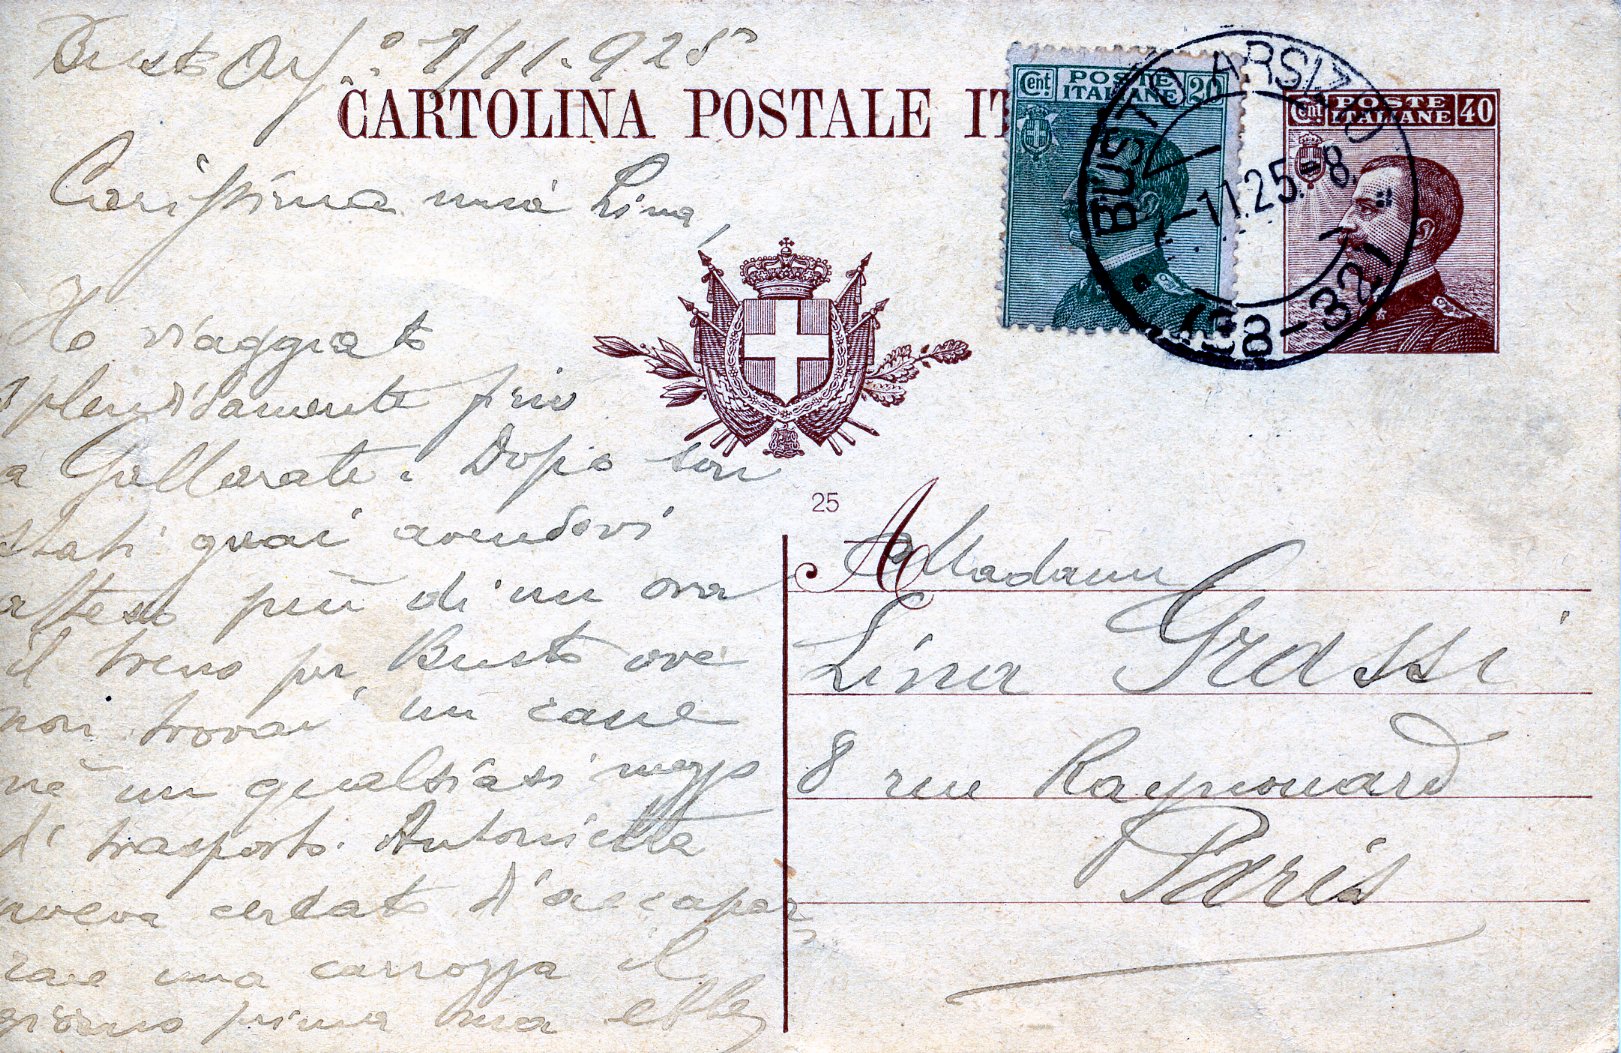 Busto Ars° 1/11.925
CARTOLINA POSTALE IT
Cent. POSTE ITALIANE 20
Cent. POSTE ITALIANE 40
BUSTO ARSIZIO
11.25.-8
Carissima mia Lina,
Ho viaggiato
splendidamente fino
a Gallarate. Dopo son
stati guai avendovi
atteso più di un ora
il treno per Busto ove
non trovai un cane
nè un qualsiasi mezzo
di trasporto. Antonietta
aveva cercato d'accapar
rare una carrozza il
giorno prima ma ebbe
25
A Madame
Lina Grassi
8 rue Raynouard
Paris